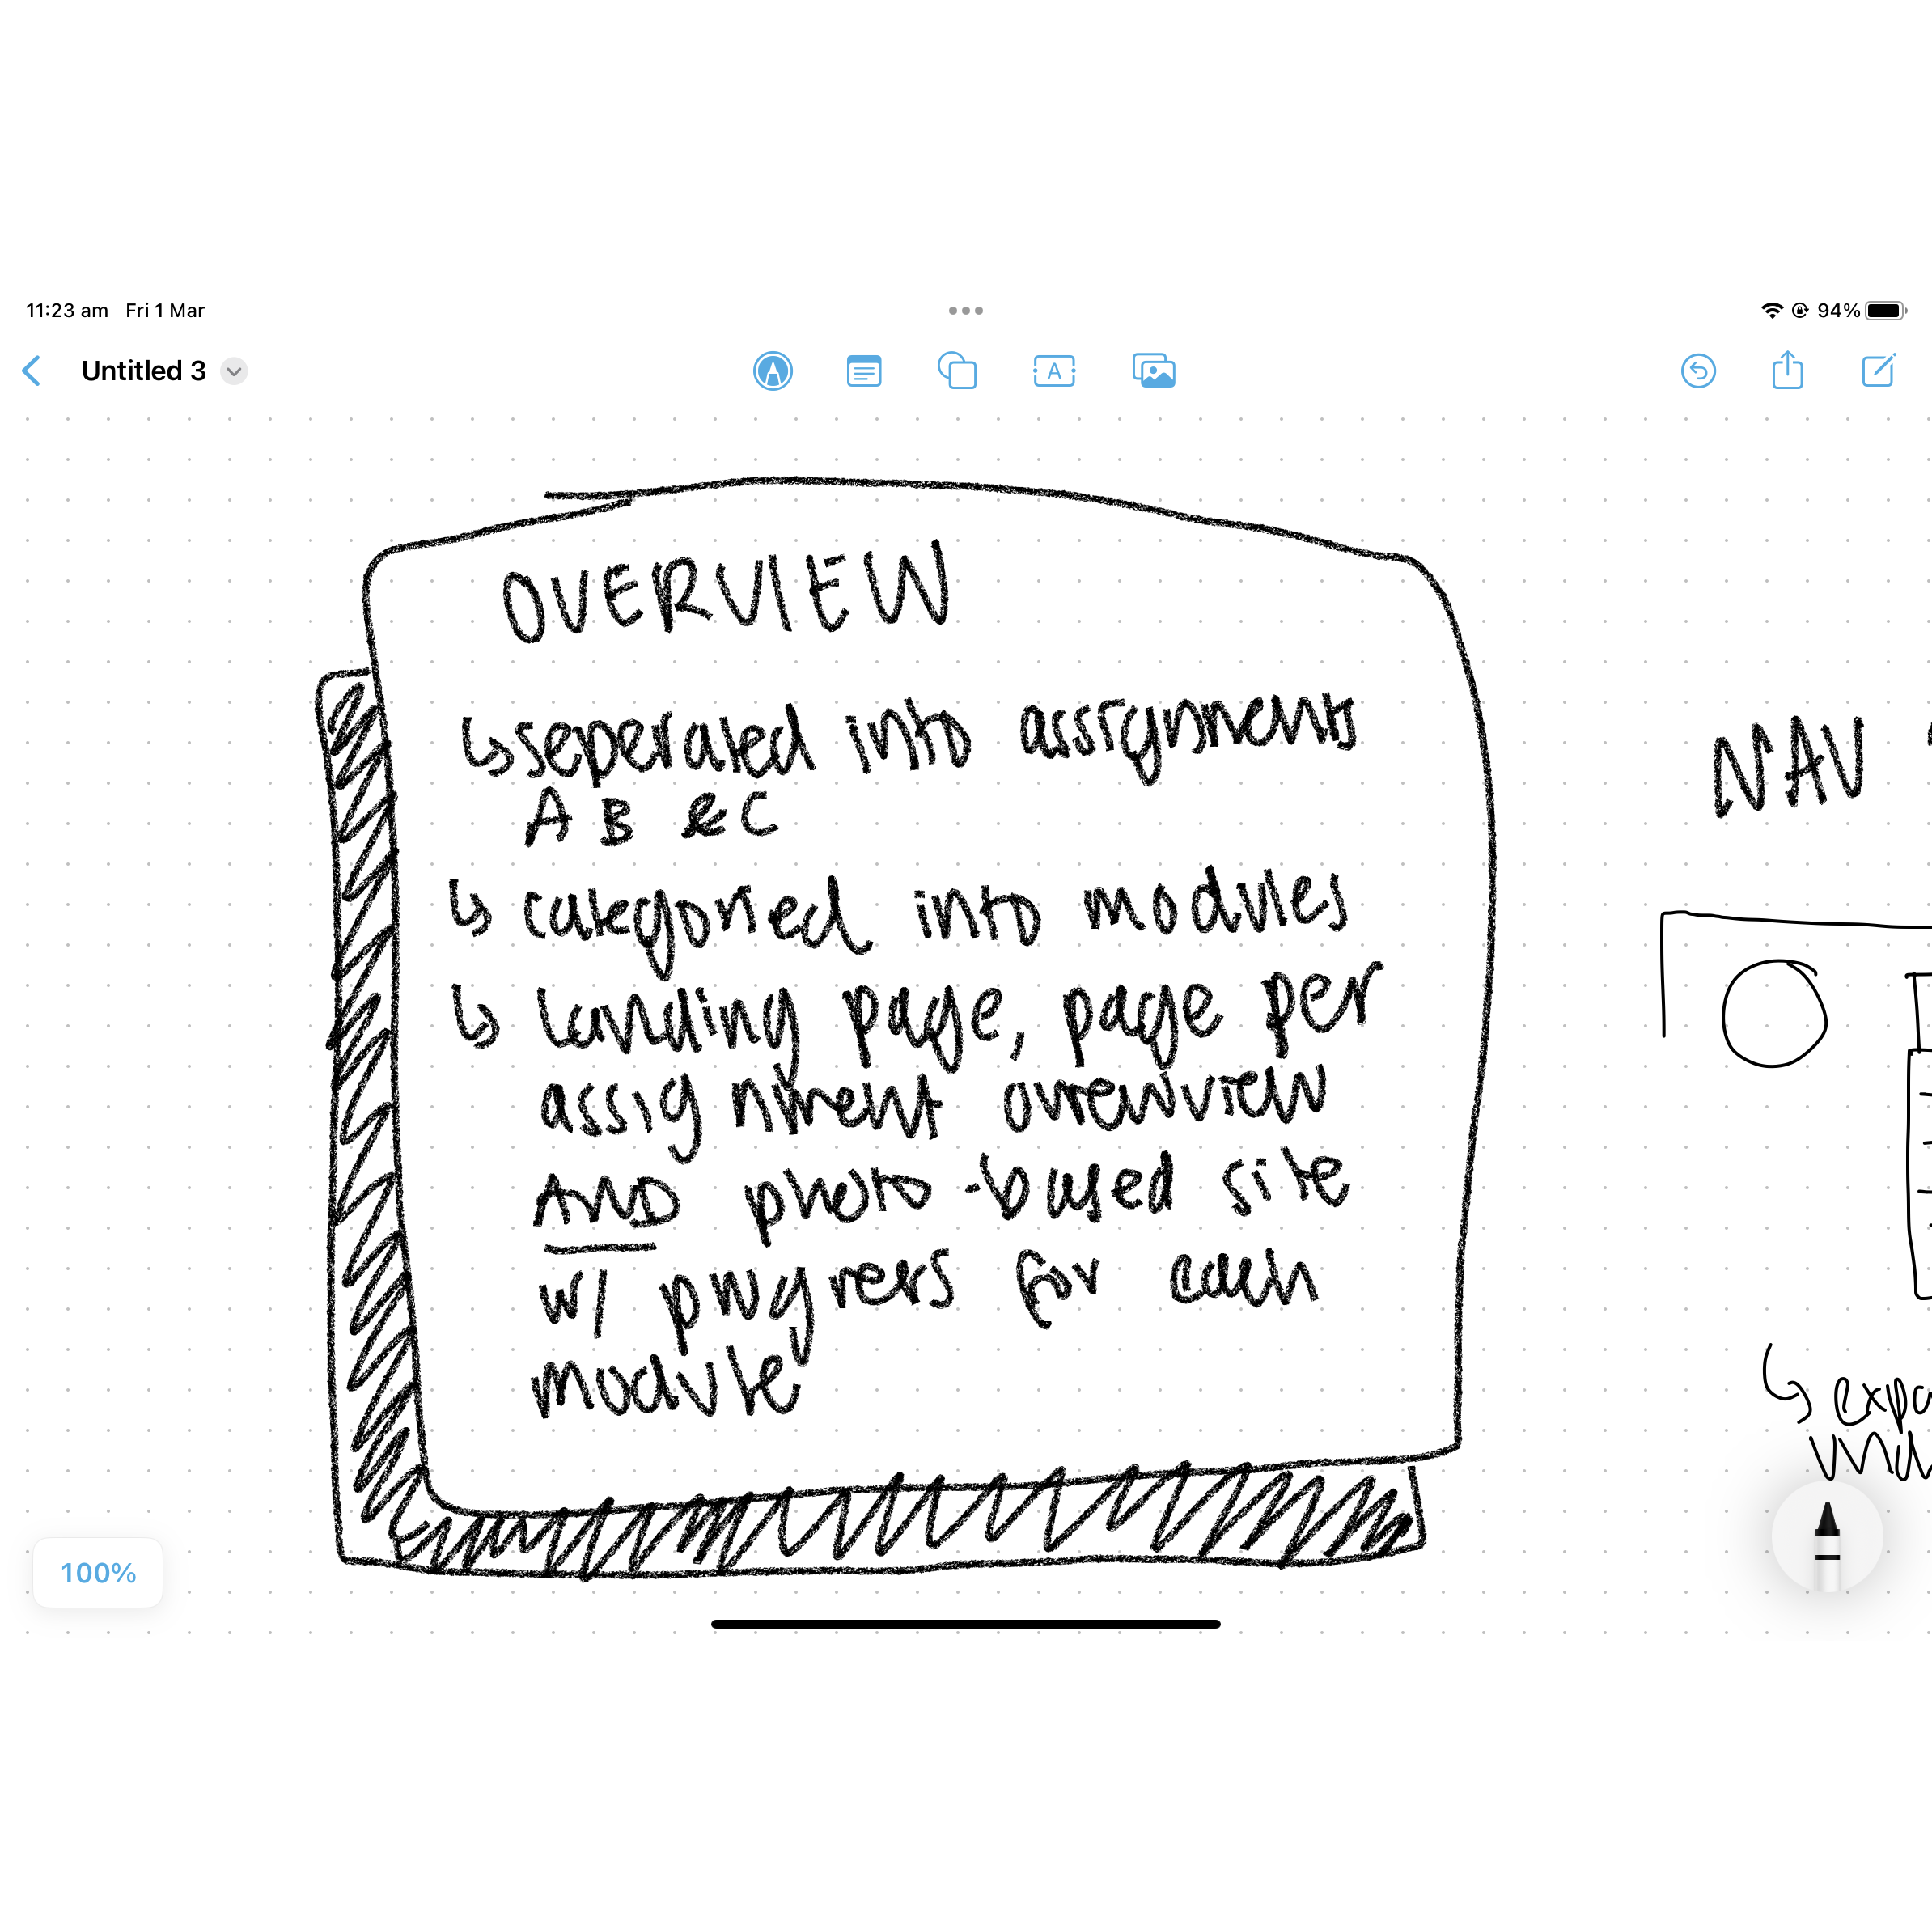 11:23 am Fri 1 Mar
94%
Untitled 3
A
OVERVIEW
↳ seperated into assignments
A B & C
↳ categoried into modules
↳ landing page, page per
assignment overview
AND photo-based site
w/ for each
module
NAV
↳ expa
100%